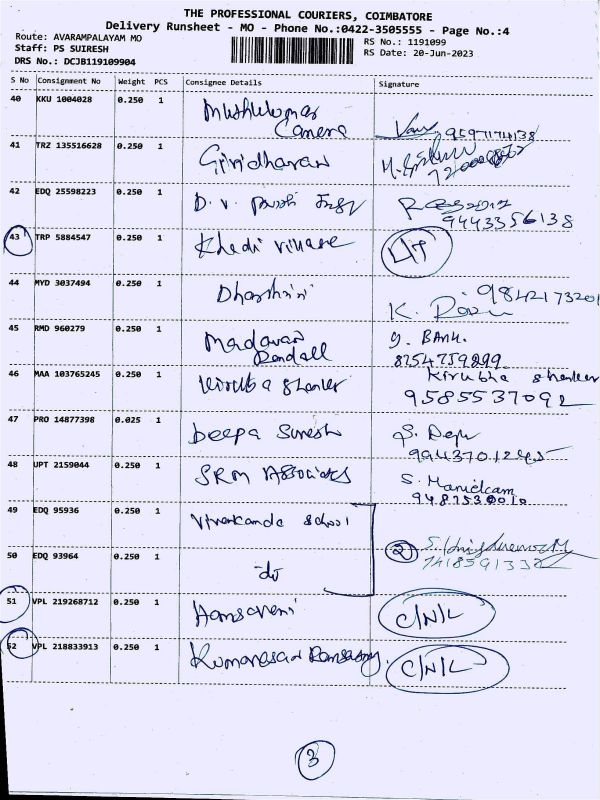 THE PROFESSIONAL COURIERS, COIMBATORE
Delivery Runsheet - MO - Phone No.:0422-3505555 - Page No.:4
Route: AVARAMPALAYAM MO
Staff: PS SUIRESH
DRS No.: DCJB119109904
RS No.: 1191099
RS Date: 20-Jun-2023
S No Consignment No Weight PCS Consignee Details Signature
40 KKU 1004028 0.250 1 Muthukumar
Camera
41 TRZ 135516628 0.250 1 Giridharan
42 EDQ 25598223 0.250 1 D. V.
9443356138
43 TRP 5884547 0.250 1 Khadi
44 MYD 3037494 0.250 1 Dharshini 9842173201
K.
45 RMD 960279 0.250 1 Madavan G. BANU.
8754759899
46 MAA 103765245 0.250 1 Kirubha Shanker Kirubha Shanker
9585537092
47 PRO 14877398 0.025 1 Deepa Suresh S. Deepa
48 UPT 2159044 0.250 1 SRM Associates S. Manickam
49 EDQ 95936 0.250 1 Vivekanda School
2
50 EDQ 93964 0.250 1 do
51 VPL 219268712 0.250 1 Hamsaveni C/N/L
52 VPL 218833913 0.250 1 Kumaresan Ramasamy C/N/L
3